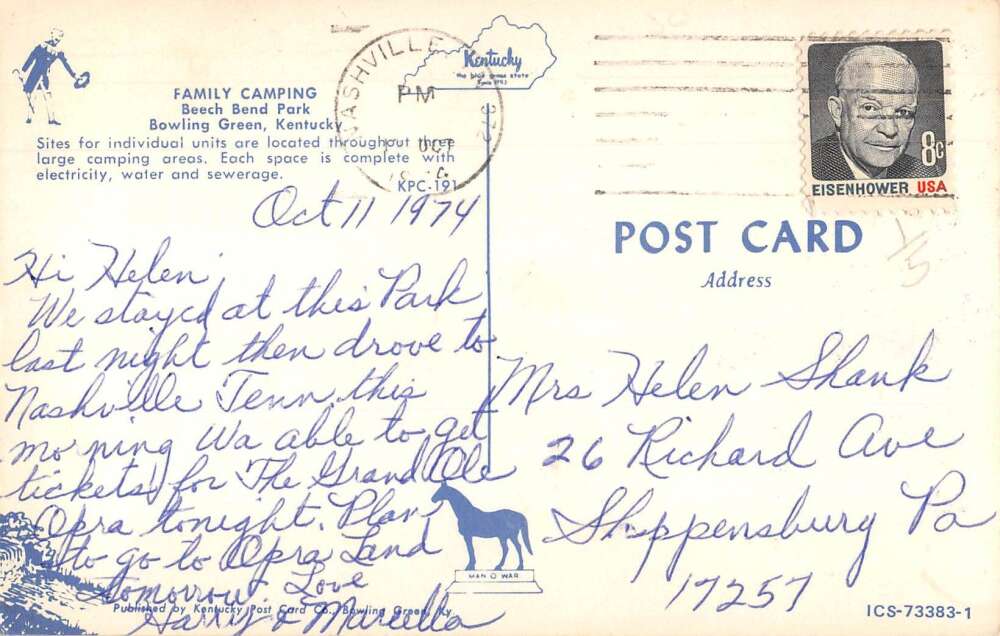 FAMILY CAMPING
Beech Bend Park
Bowling Green, Kentucky
Sites for individual units are located throughout three
large camping areas. Each space is complete with
electricity, water and sewerage.
KPC-191
Oct 11 1974
Hi Helen
We stayed at this Park
last night then drove to
Nashville Tenn this
morning Wa able to get
tickets for The Grand Ole
Opra tonight. Plan
to go to Opra Land
tomorrow. Love
Harry & Marcella
Published by Kentucky Post Card Co., Bowling Green, Ky.
Kentucky
the blue grass state
NASHVILLE
PM
OCT
MAN O WAR
8c
EISENHOWER USA
POST CARD
Address
1/5
Mrs Helen Shank
26 Richard Ave
Shippensburg Pa
17257
ICS-73383-1